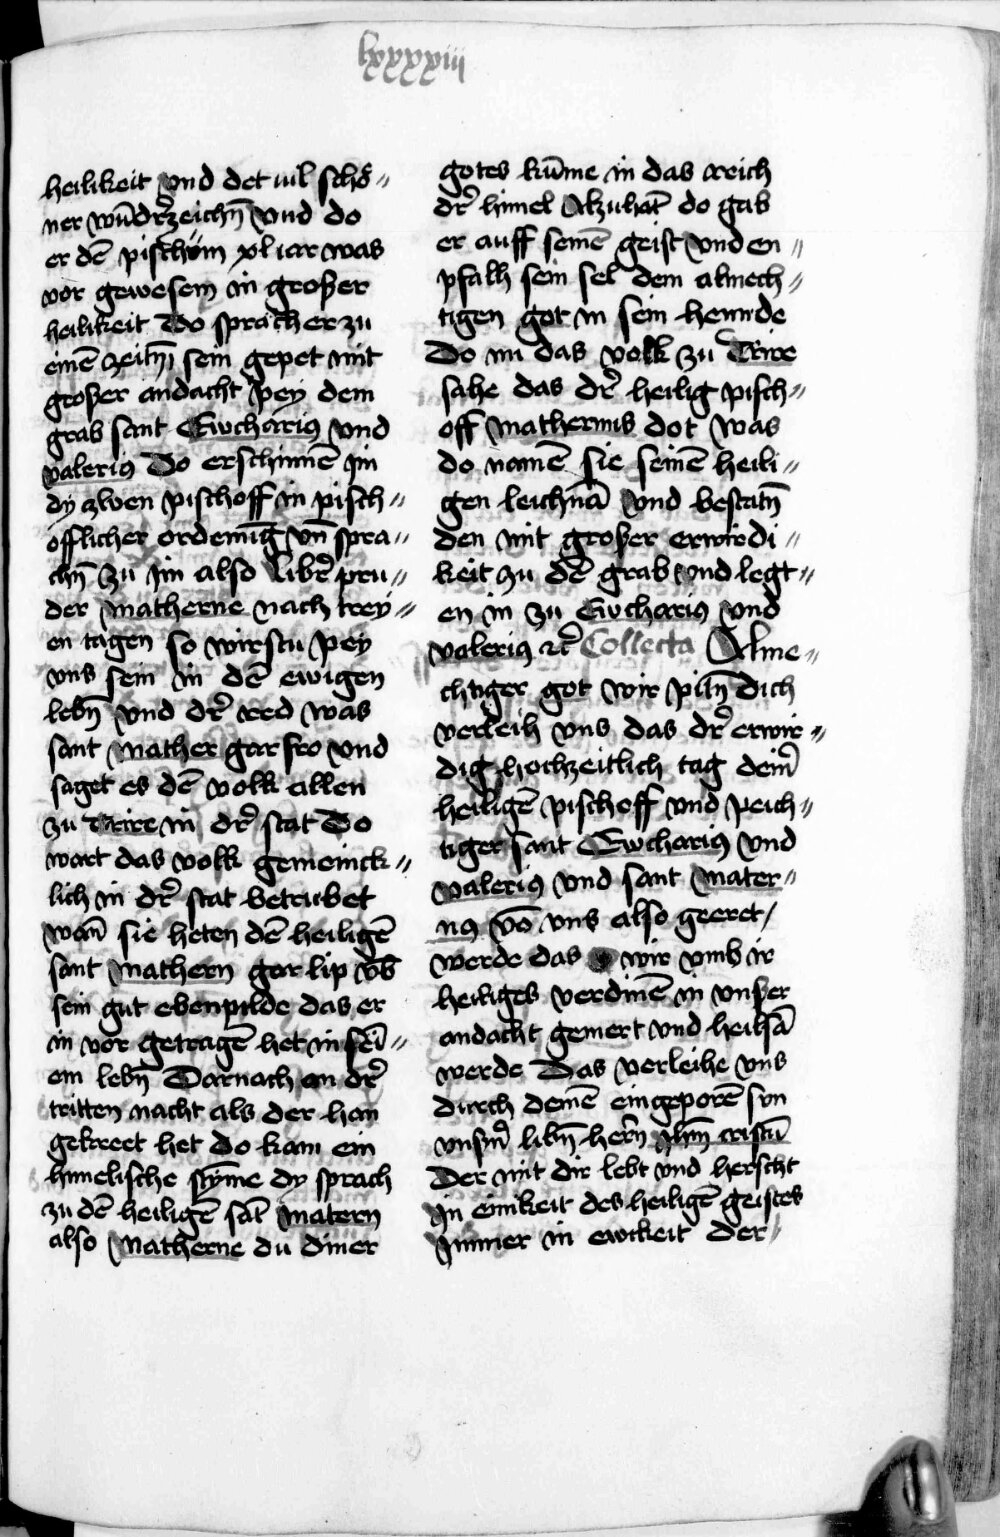 lxxxxviii
heilikeit vnd det vil schö„
ner wūdr̄zeichn̄ vnd do
er dē pischtum xl iar was
vor gewesem in großer
heilikeit Do sprach er zu
einē zeitn̄ sein gepet mit
großer andacht pey dem
grab sant Ewcharius vnd
valerius Do erschinnē jm
dy zwen pischoff in pisch„
öfflicher ordenūg vn̄ spra„
chn̄ zu jm also libr̄ pru„
der matherne nach trey„
en tagen so wirstu pey
vns sein in dē ewigen
lebn̄ vnd dr̄ red was
sant mather gar fro vnd
saget es dē volk allen
zu trire in dr̄ stat Do
wart das volk gemeinck„
lich in dr̄ stat betrubet
wan̄ sie heten dē heiligē
sant mathern gar lip vb̄
sein gut ebenpilde das er
in vor getragē het in sei„
em lebn̄ Darnach an dr̄
tritten nacht als der han
gekreet het do kam ein
himelische stȳme dy sprach
zu dē heiligē sāt matern
also matherne du diner
gotes kūme in das reich
dr̄ himel Alzuhāt do gab
er auff seinē geist vnd en„
pfalh sein sel dem almech„
tigen got in sein hennde
Do nu das volk zu Trire
sahe das dr̄ heilig pisch„
off mathernus dot was
do namē sie seinē heili„
gen leichnā vnd bestatn̄
den mit großer erwirdi„
keit zu dē grab vnd legt„
en in zu Ewcharius vnd
valerius ꝛc̄ Collecta Alme„
chtiger got wir pitn̄ dich
verleih vns das dr̄ erwir„
dig hochzeitlich tag dein̄
heiligē pischoff vnd peich„
tiger sant Ewcharius vnd
valerius vnd sant mater„
nus vō vns also geeret/
werde das wir vmb ir
heiliges verdinē in vnßer
andacht gemert vnd heilsā
werde Das verleihe vns
durch deinē eingeporē sun
vnsm̄ libn̄ hern̄ jhm̄ cristū
Der mit dir lebt vnd herscht
in einikeit des heiligē geistes
jmmer in ewikeit der„